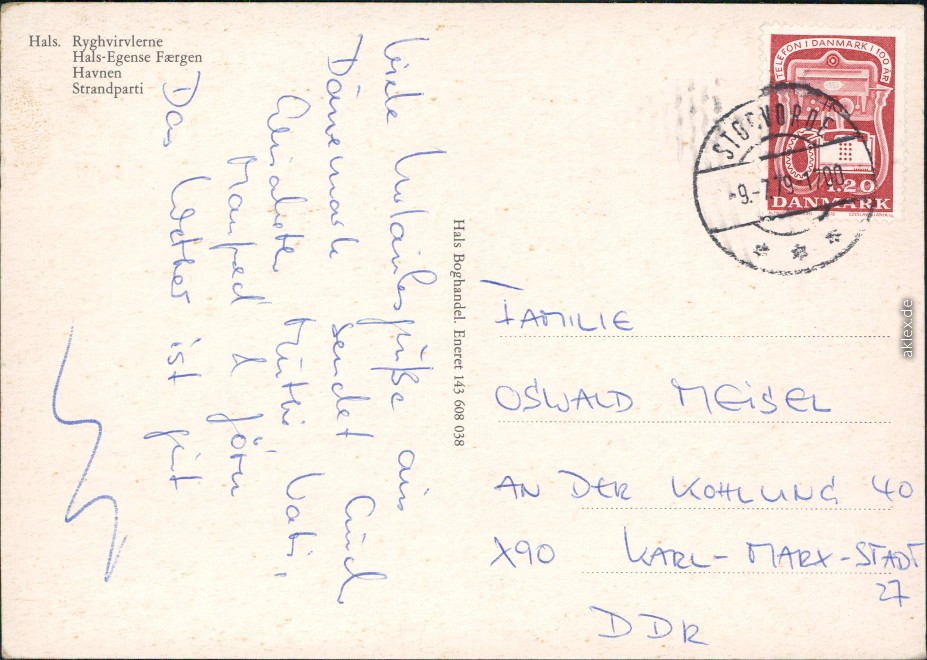 Hals. Ryghvirvlerne
Hals-Egense Færgen
Havnen
Strandparti
Viele Urlaubsgrüße aus
Dänemark sendet Euch
Elisabeth Mutti Vati,
Manfred & Jörn
Das Wetter ist gut
Hals Boghandel. Eneret 143 608 038
TELEFON I DANMARK I 100 ÅR
1.20
DANMARK
STOUVORDE
-9.-7.79-1700
FAMILIE
OSWALD MEISEL
AN DER KOHLUNG 40
X90 KARL-MARX-STADT
27
DDR
aklex.de